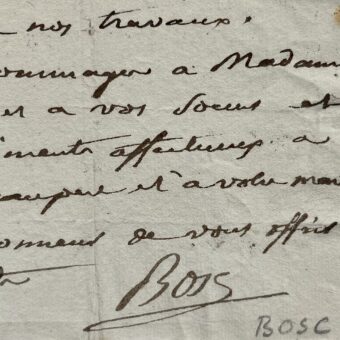 nos travaux.
hommages à Madam
et a vos Soeurs et
iments affectueux a
et à votre mar
honneur de vous offrir
Bosc
BOSC